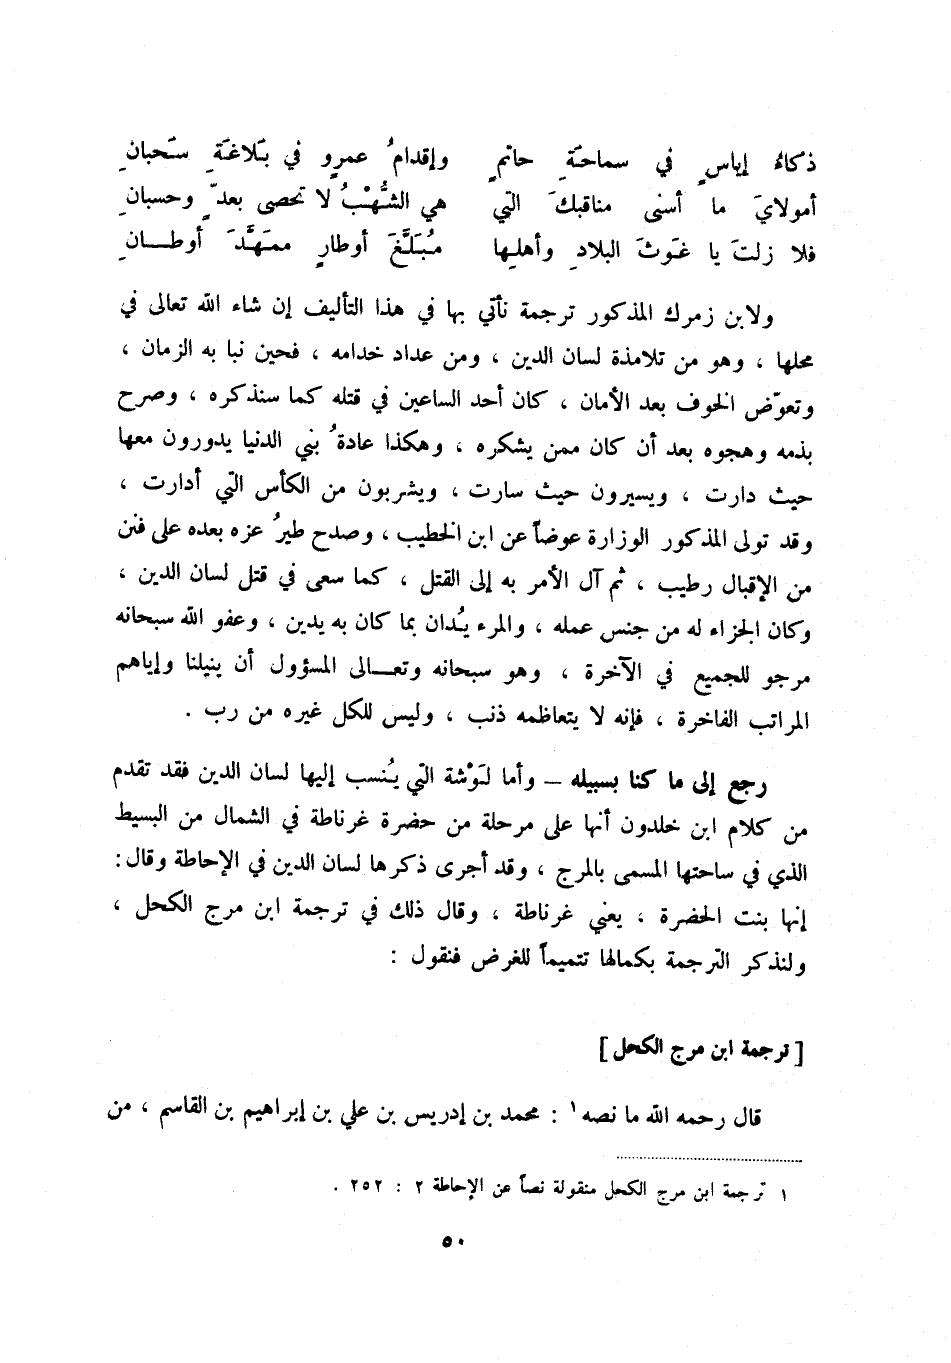 ذكاءُ إياسٍ في سماحَةِ حاتمٍ وإقدامُ عمرٍو في بَلاغَةِ سَحبانِ
أمولايَ ما أسنى مناقبكَ التي هي الشُّهْبُ لا تحصى بعدٍّ وحسبانِ
فلا زلتَ يا غَوثَ البلادِ وأهلِها مُبَلَّغَ أوطارٍ ممَهَّدَ أوطانِ
ولابن زمرك المذكور ترجمة نأتي بها في هذا التأليف إن شاء الله تعالى في
محلها ، وهو من تلامذة لسان الدين ، ومن عداد خدامه ، فحين نبا به الزمان ،
وتعوّض الخوف بعد الأمان ، كان أحد الساعين في قتله كما سنذكره ، وصرح
بذمه وهجوه بعد أن كان ممن يشكره ، وهكذا عادةُ بني الدنيا يدورون معها
حيث دارت ، ويسيرون حيث سارت ، ويشربون من الكأس التي أدارت ،
وقد تولى المذكور الوزارة عوضاً عن ابن الخطيب ، وصدح طيرُ عزه بعده على فنن
من الإقبال رطيب ، ثم آل الأمر به إلى القتل ، كما سعى في قتل لسان الدين ،
وكان الجزاء له من جنس عمله ، والمرء يُدان بما كان به يدين ، وعفو الله سبحانه
مرجو للجميع في الآخرة ، وهو سبحانه وتعالى المسؤول أن ينيلنا وإياهم
المراتب الفاخرة ، فإنه لا يتعاظمه ذنب ، وليس للكل غيره من رب .
رجع إلى ما كنا بسبيله – وأما لَوْشة التي يُنسب إليها لسان الدين فقد تقدم
من كلام ابن خلدون أنها على مرحلة من حضرة غرناطة في الشمال من البسيط
الذي في ساحتها المسمى بالمرج ، وقد أجرى ذكرها لسان الدين في الإحاطة وقال :
إنها بنت الحضرة ، يعني غرناطة ، وقال ذلك في ترجمة ابن مرج الكحل ،
ولنذكر الترجمة بكمالها تتميماً للغرض فنقول :
[ ترجمة ابن مرج الكحل ]
قال رحمه الله ما نصه ١ : محمد بن إدريس بن علي بن إبراهيم بن القاسم ، من
١ ترجمة ابن مرج الكحل منقولة نصاً عن الإحاطة ٢ : ٢٥٢ .
٥٠